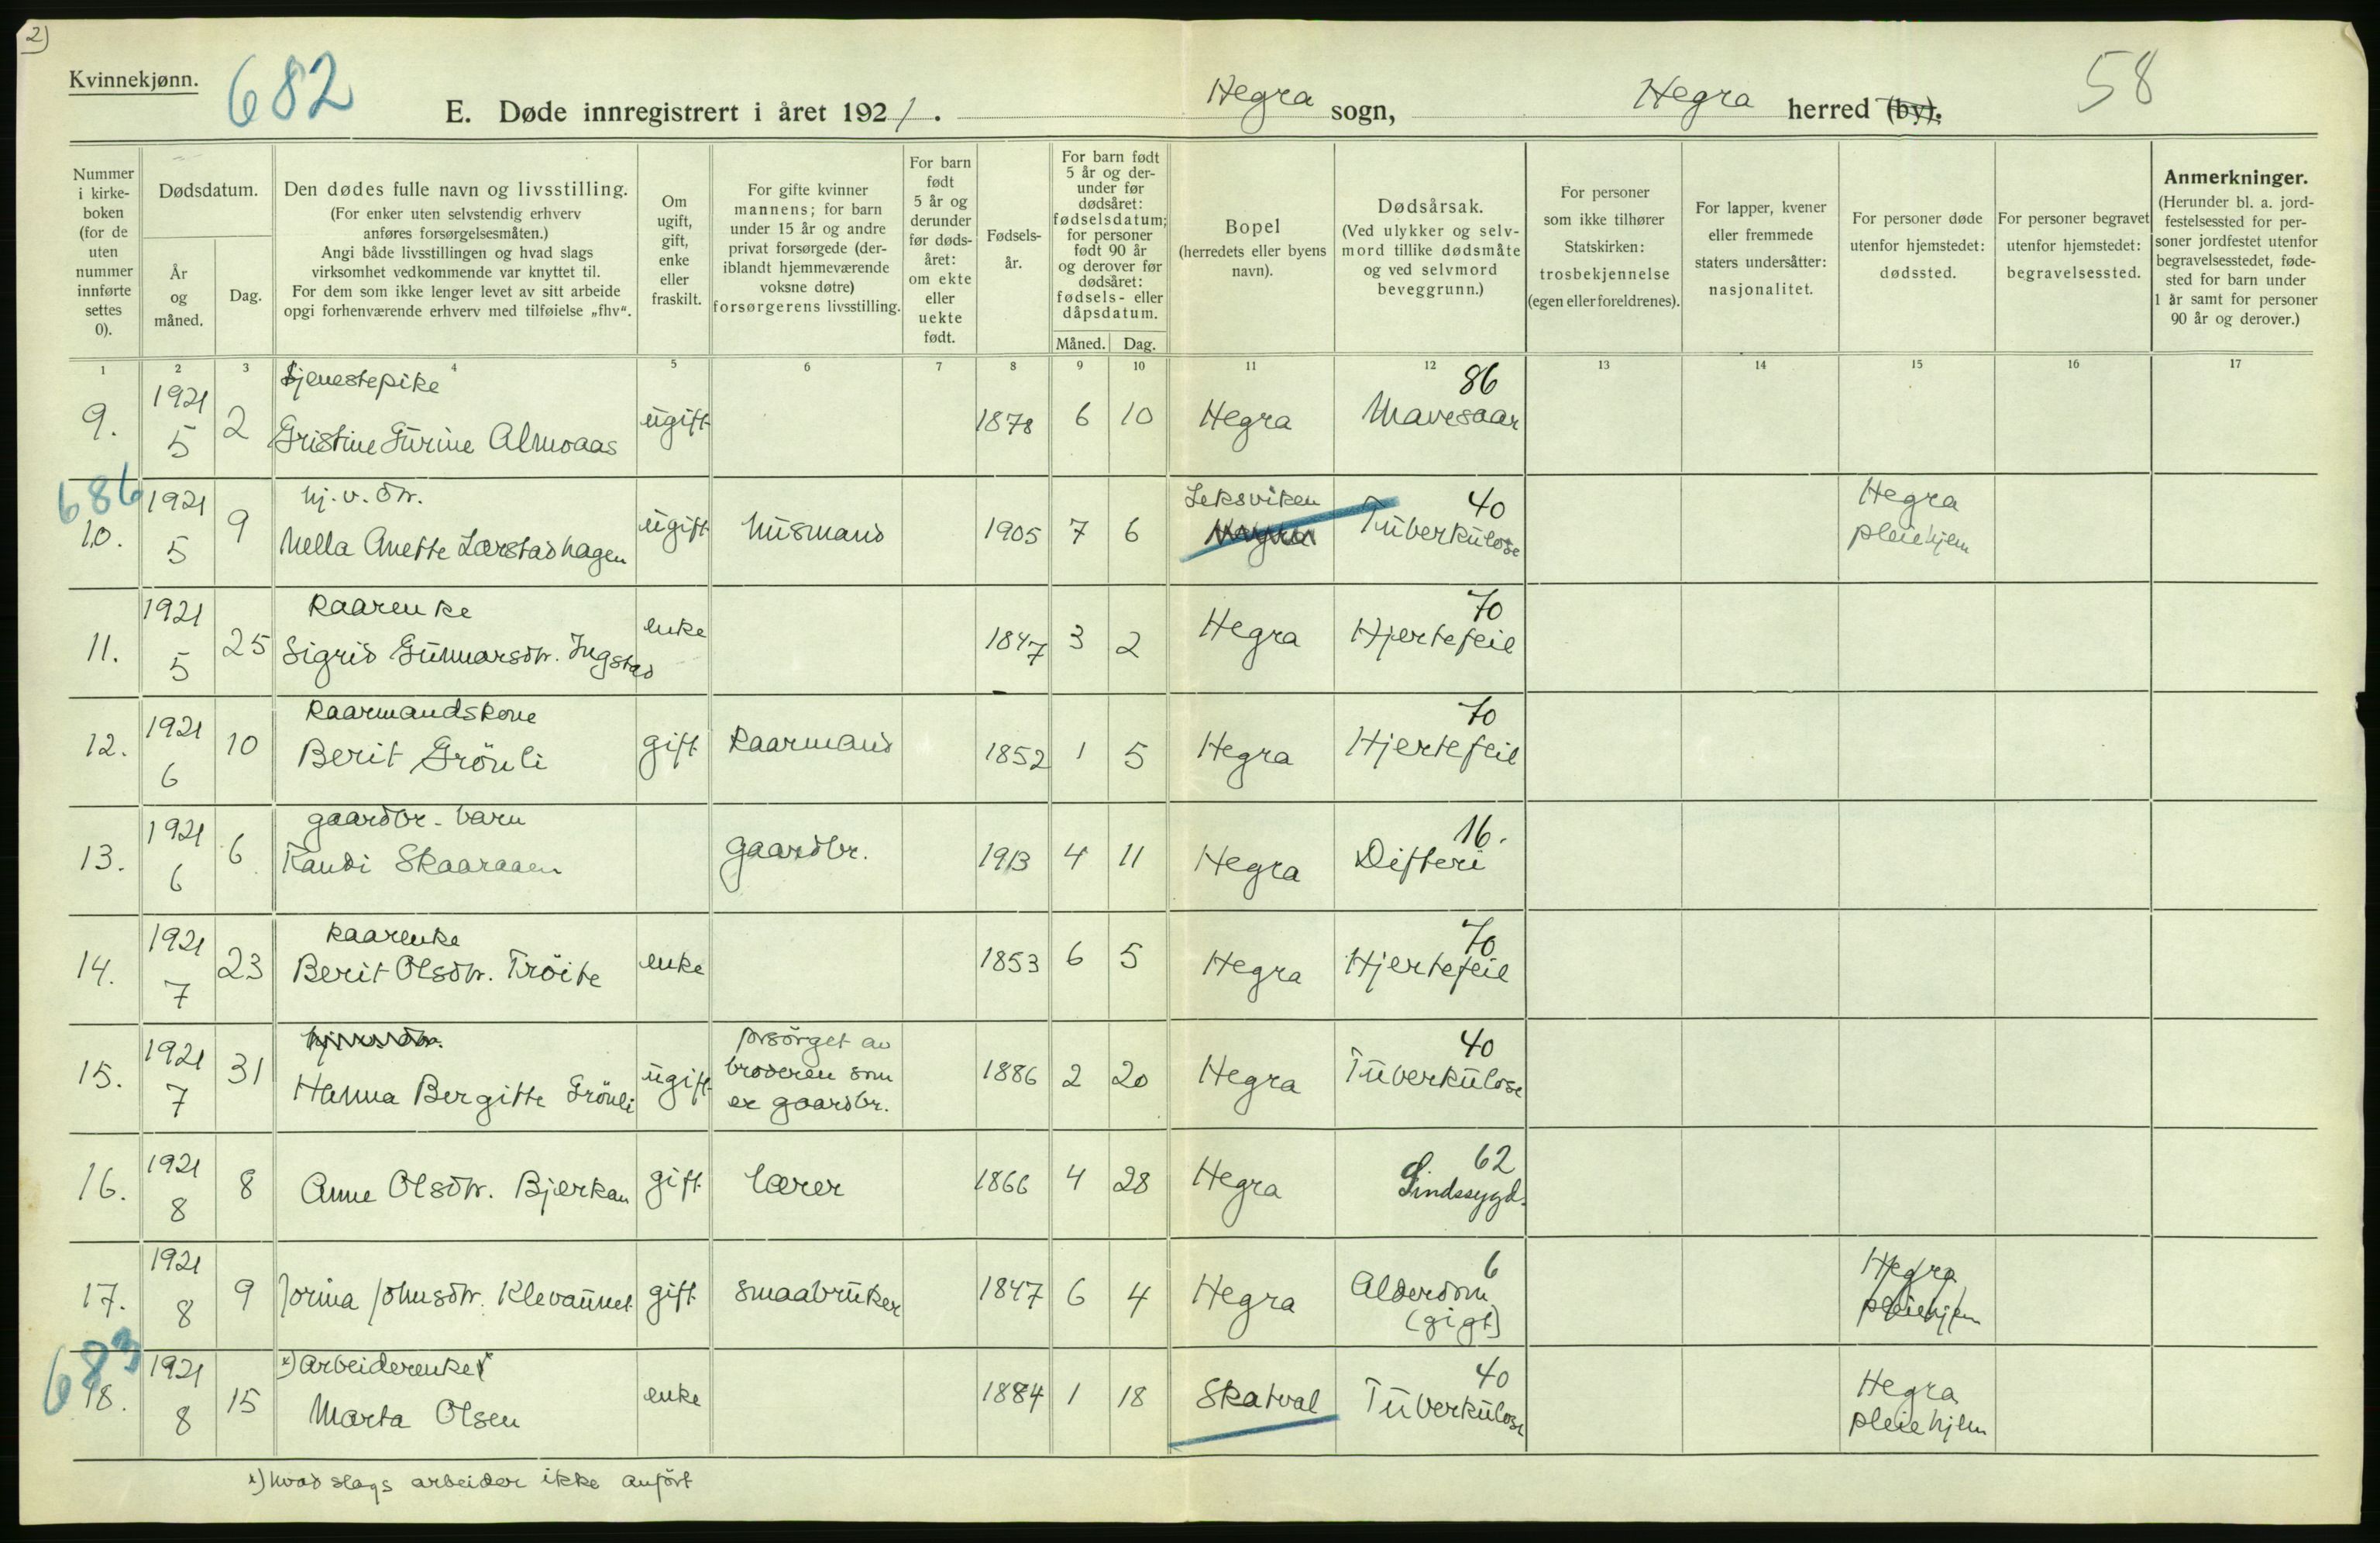 2)
Kvinnekjønn.
682
E. Døde innregistrert i året 1921.
Hegra sogn,
Hegra herred (by).
58
Nummer i kirke-boken (for de uten nummer innførte settes 0).
Dødsdatum.
År og måned.
Dag.
Den dødes fulle navn og livsstilling.
(For enker uten selvstendig erhverv
anføres forsørgelsesmåten.)
Angi både livsstillingen og hvad slags
virksomhet vedkommende var knyttet til.
For dem som ikke lenger levet av sitt arbeide
opgi forhenværende erhverv med tilføielse „fhv“.
Om ugift, gift, enke eller fraskilt.
For gifte kvinner
mannens; for barn
under 15 år og andre
privat forsørgede (der-
iblandt hjemmeværende
voksne døtre)
forsørgerens livsstilling.
For barn født 5 år og derunder før døds-året: om ekte eller uekte født.
Fødsels-år.
For barn født
5 år og der-
under før
dødsåret:
fødselsdatum;
for personer
født 90 år
og derover før
dødsåret:
fødsels- eller
dåpsdatum.
Måned. Dag.
Bopel
(herredets eller byens
navn).
Dødsårsak.
(Ved ulykker og selv-
mord tillike dødsmåte
og ved selvmord
beveggrunn.)
For personer
som ikke tilhører
Statskirken:
trosbekjennelse
(egen eller foreldrenes).
For lapper, kvener
eller fremmede
staters undersåtter:
nasjonalitet.
For personer døde
utenfor hjemstedet:
dødssted.
For personer begravet
utenfor hjemstedet:
begravelsessted.
Anmerkninger.
(Herunder bl. a. jord-
festelsessted for per-
soner jordfestet utenfor
begravelsesstedet, føde-
sted for barn under
1 år samt for personer
90 år og derover.)
1 2 3 4 5 6 7 8 9 10 11 12 13 14 15 16 17
tjenestepike 86
9. 1921 5 2 Gristine Gurine Almoaas ugift 1878 6 10 Hegra Mavesaar
686 hj. v. dtr. Leksviken 40 Hegra
10. 1921 5 9 Mella Anette Lørstadhagen ugift husmand 1905 7 6 Tuberkulose pleiehjem
kaarenke 70
11. 1921 5 25 Sigrid Gunnarsdtr. Ingstad enke 1847 3 2 Hegra Hjertefeil
kaarmandskone 70
12. 1921 6 10 Berit Grönli gift kaarmand 1852 1 5 Hegra Hjertefeil
gaardbr. barn 16.
13. 1921 6 6 Randi Skaaraaen gaardbr. 1913 4 11 Hegra Difteri
kaarenke 70
14. 1921 7 23 Berit Olsdtr. Tröite enke 1853 6 5 Hegra Hjertefeil
forsörget av 40
15. 1921 7 31 Hanna Bergitte Grönli ugift broderen som er gaardbr. 1886 2 20 Hegra Tuberkulose
62
16. 1921 8 8 Anne Olsdtr. Bjerkan gift lærer 1866 4 28 Hegra Sindssygd.
6 Hegra
17. 1921 8 9 Jorina Johnsdtr. gift smaabruker 1847 6 4 Hegra Alderdom (gigt) pleiehjem
683 x) arbeiderenke x 40 Hegra
18. 1921 8 15 Marta Olsen enke 1884 1 18 Skatval Tuberkulose pleiehjem
x) hvad slags arbeider ikke anfört